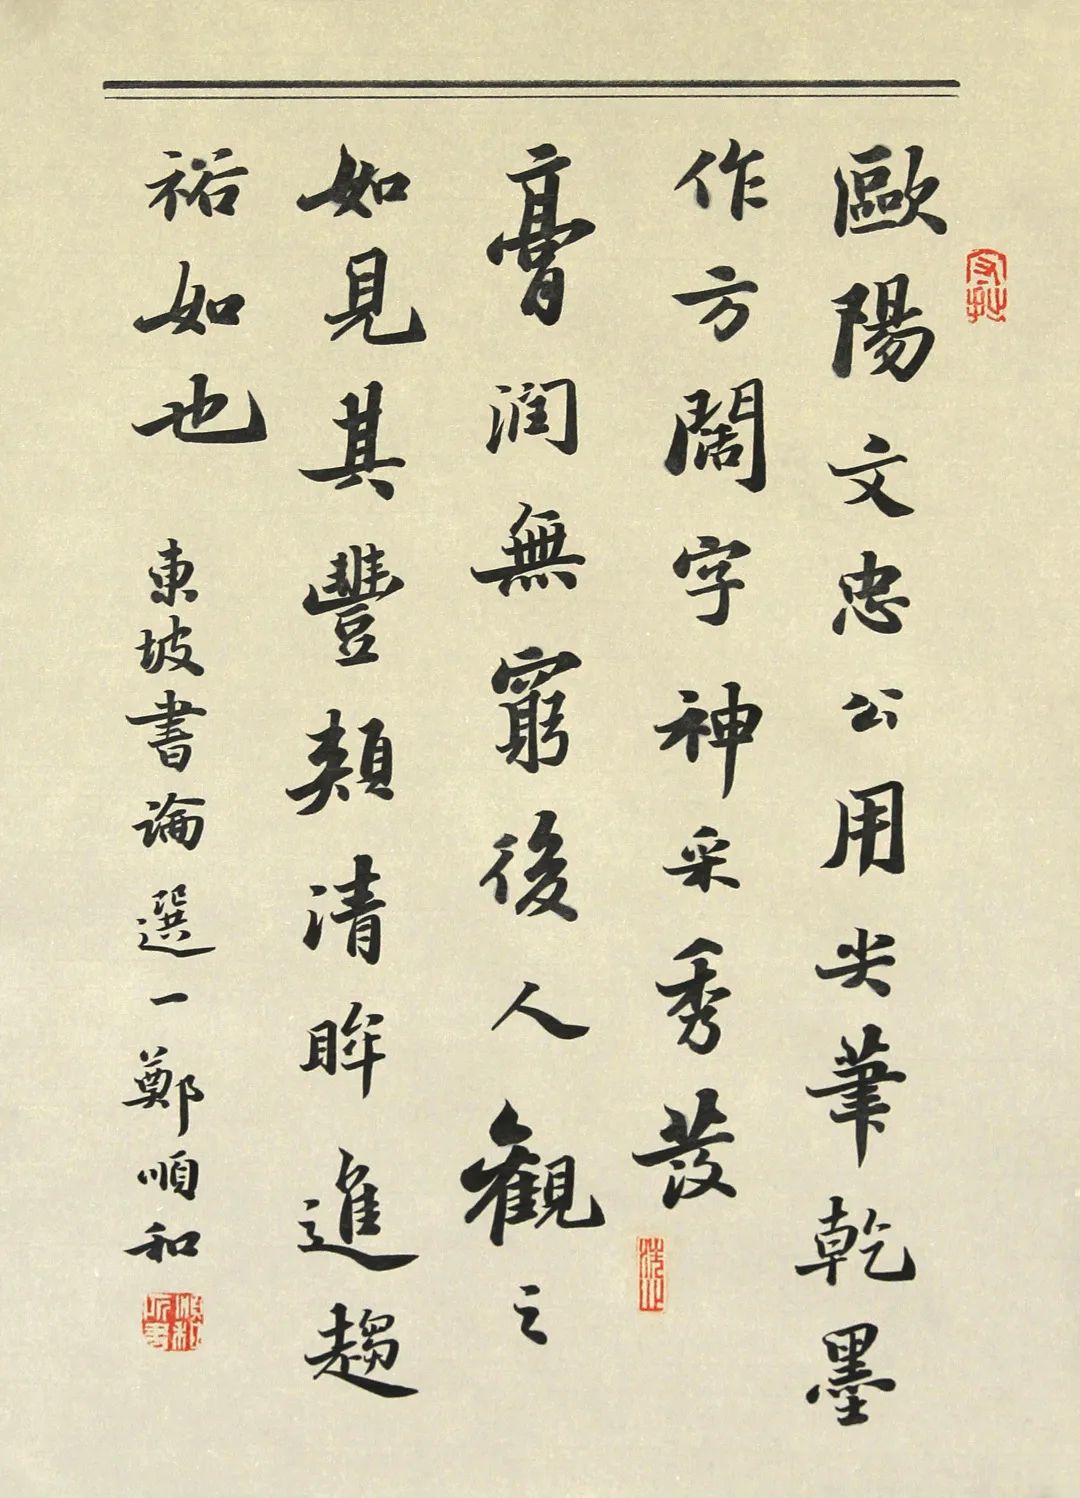 歐陽文忠公用尖筆乾墨
作方闊字神采秀發
膏潤無窮後人觀之
如見其豐頰清眸進趨
裕如也
東坡書論選一鄭順和